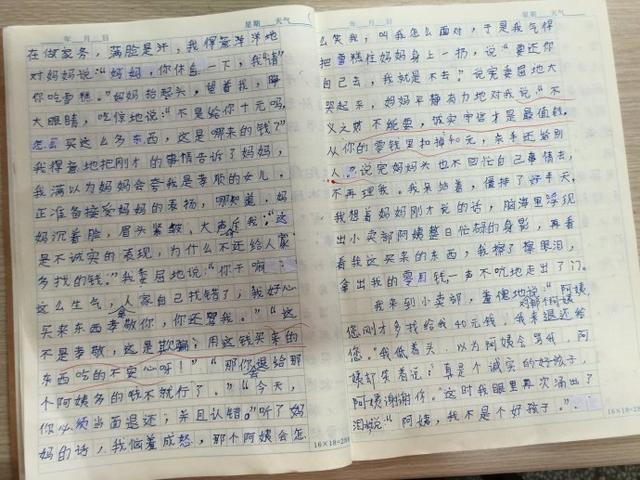 年 月 日
星期 天气
在做家务，满脸是汗，我得意洋洋地
对妈妈说："妈妈，你休息一下，我请
你吃雪糕。"妈妈抬起头，望着我，睁
大眼睛，吃惊地说："不是给你十元吗，
买这么多东西，这是哪来的钱？"
我得意地把刚才的事情告诉了妈妈，
我满以为妈妈会夸我是孝顺的女儿，
正准备接受妈妈的表扬，哪知道，妈
妈沉着脸，眉头紧皱，大声  我："这
是不诚实的表现，为什么不还给人家
多找的钱。"我委屈地说："你干嘛
这么生气，人家自己找错了，我好心
买来东西孝敬你，你还骂我。""这
不是孝敬，这是欺骗；用这钱买来的
东西吃的不安心呀！""那你退给那
个阿姨多的钱不就行了。""今天，
你必须当面退还；并且认错。"听了妈
妈的话，我恼羞成怒，那个阿姨会怎
年 月 日
星期 天气
么笑我；叫我怎么面对，于是我气得
把雪糕往妈妈身上一扔，说"要还你
自己去，我就是不去"说完委屈地大
哭起来，妈妈平静有力地对我说："不
义之财不能要，诚实守信才是最值钱，
从你的零钱里扣掉40元，亲手还给别
人。"说完妈妈头也不回忙自己事情去，
不再理我。我呆站着，僵持了好半天，
我想着妈妈刚才说的话，脑海里浮现
出小卖部阿姨整日忙碌的身影，再看
看我这买来的东西，我擦了擦眼泪，
拿出我的零用钱一声不吭地走出了门。
我来到小卖部，羞愧地说："阿姨，
对那个阿姨
您刚才多找给我40元钱，我来退还给
您。"我低着头，以为阿姨会骂我，阿
姨却笑着说："真是个诚实的好孩子，
阿姨谢谢你。"这时我眼里再次涌出了
泪说："阿姨，我不是个好孩子。"
16×18=288
16×18=288